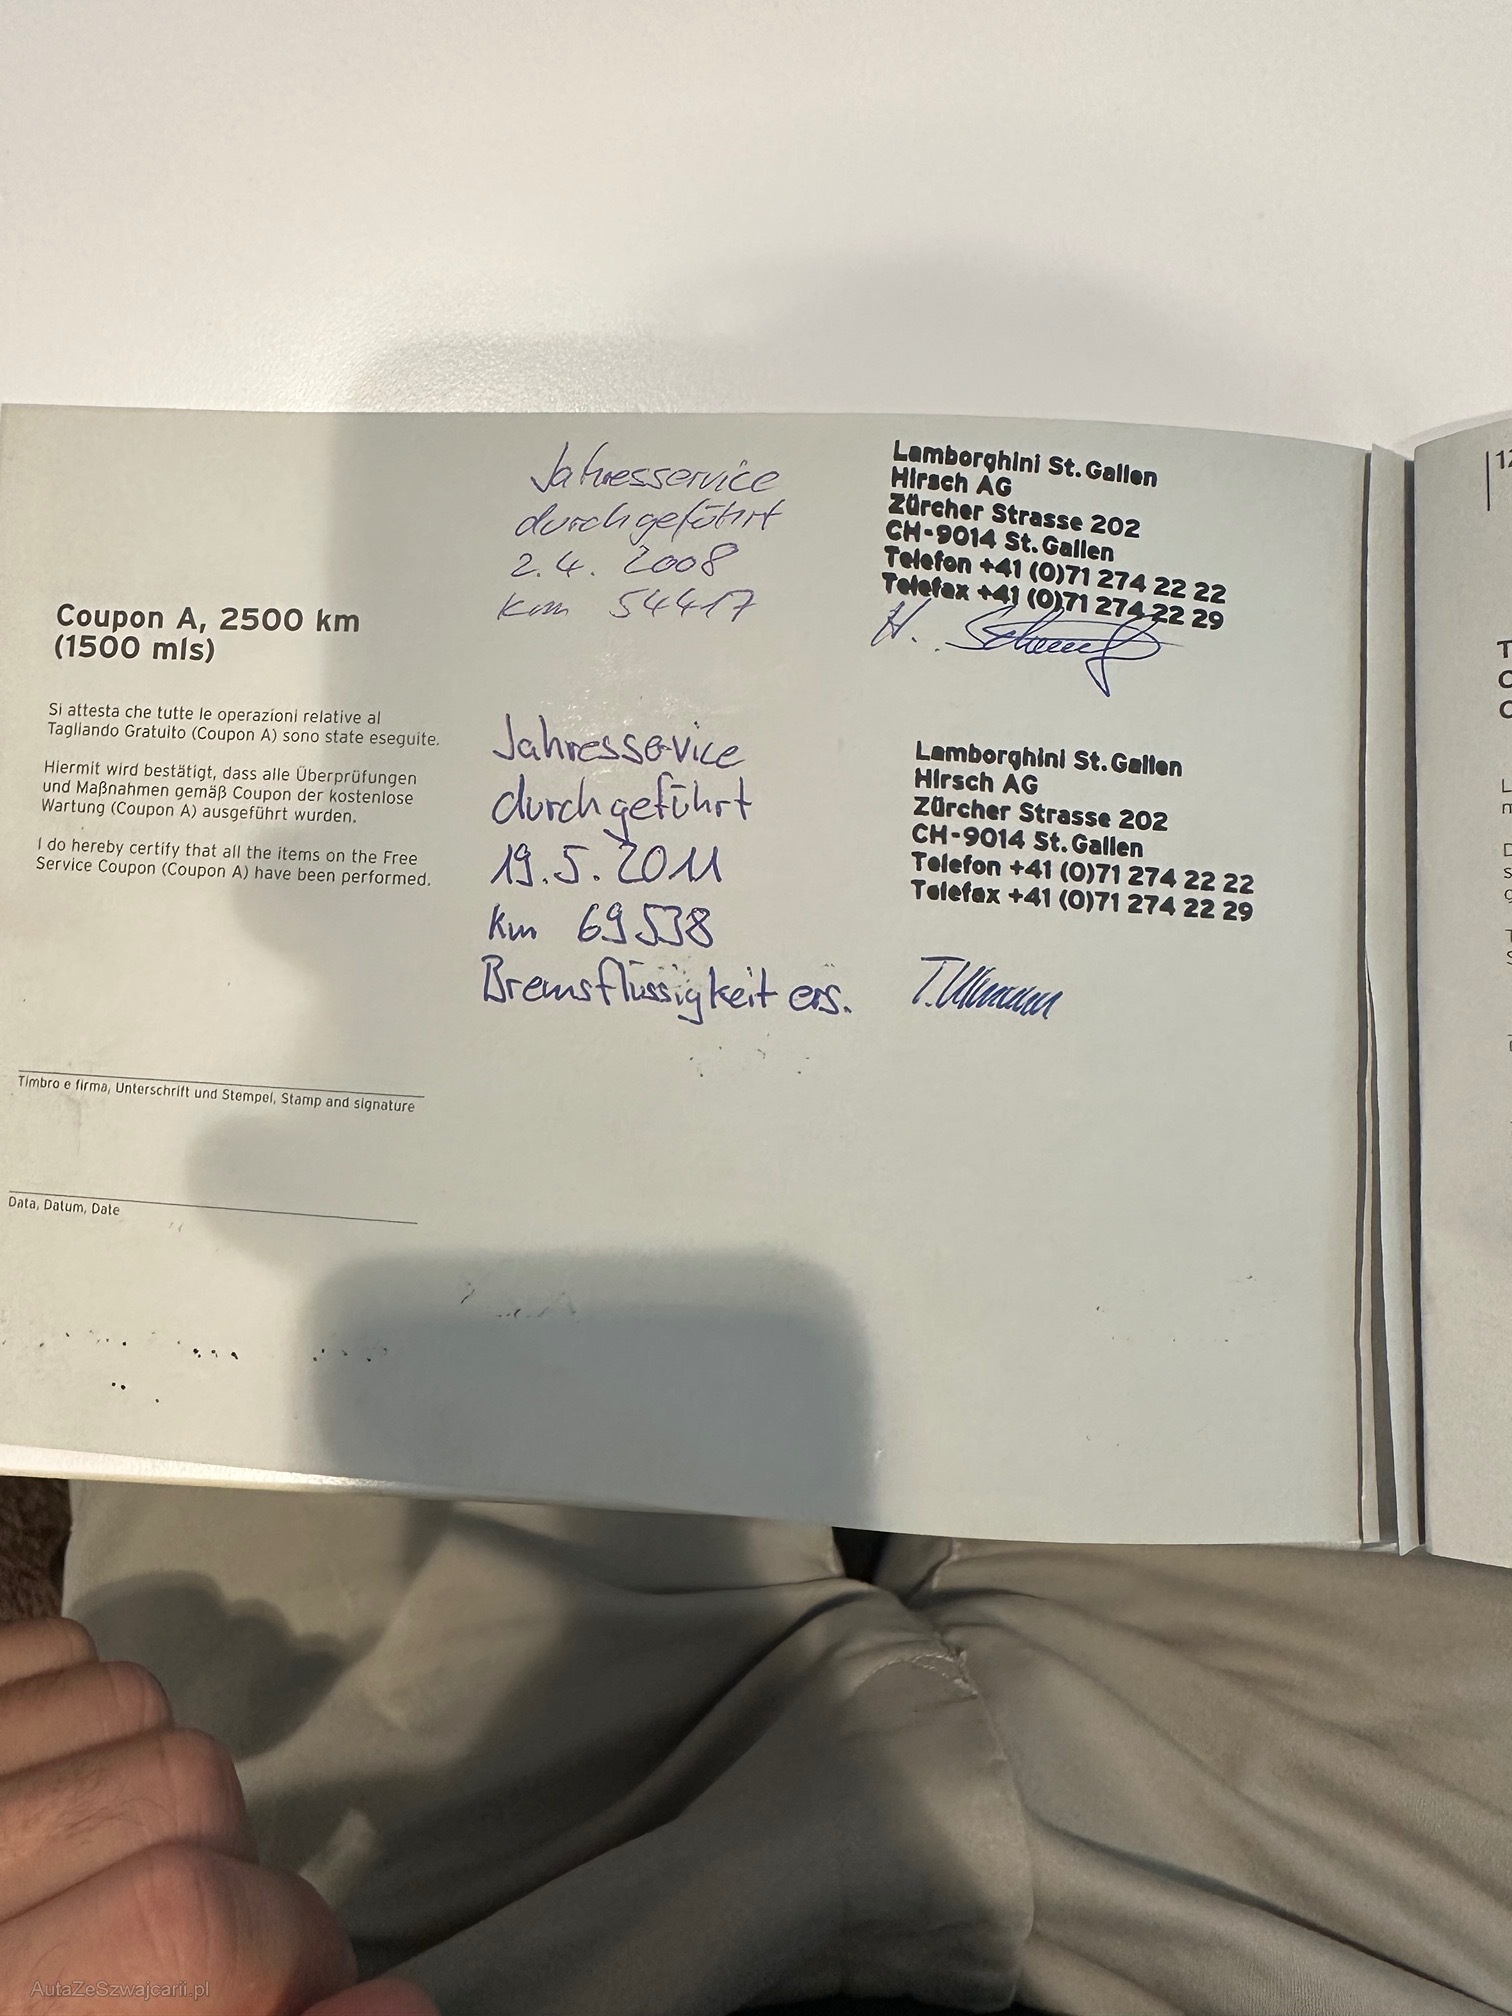 Jahresservice
durchgeführt
2.4. 2008
km 54417
Lamborghini St. Gallen
Hirsch AG
Zürcher Strasse 202
CH-9014 St. Gallen
Telefon +41 (0)71 274 22 22
Telefax +41 (0)71 274 22 29
H.
Coupon A, 2500 km
(1500 mls)
Si attesta che tutte le operazioni relative al
Tagliando Gratuito (Coupon A) sono state eseguite.
Hiermit wird bestätigt, dass alle Überprüfungen
und Maßnahmen gemäß Coupon der kostenlose
Wartung (Coupon A) ausgeführt wurden.
I do hereby certify that all the items on the Free
Service Coupon (Coupon A) have been performed.
Timbro e firma, Unterschrift und Stempel, Stamp and signature
Data, Datum, Date
Jahresservice
durchgeführt
19.5.2011
km 69538
Bremsflüssigkeit ers.
Lamborghini St. Gallen
Hirsch AG
Zürcher Strasse 202
CH-9014 St. Gallen
Telefon +41 (0)71 274 22 22
Telefax +41 (0)71 274 22 29
T. Ullmann
12
AutaZeSzwajcarii.pl